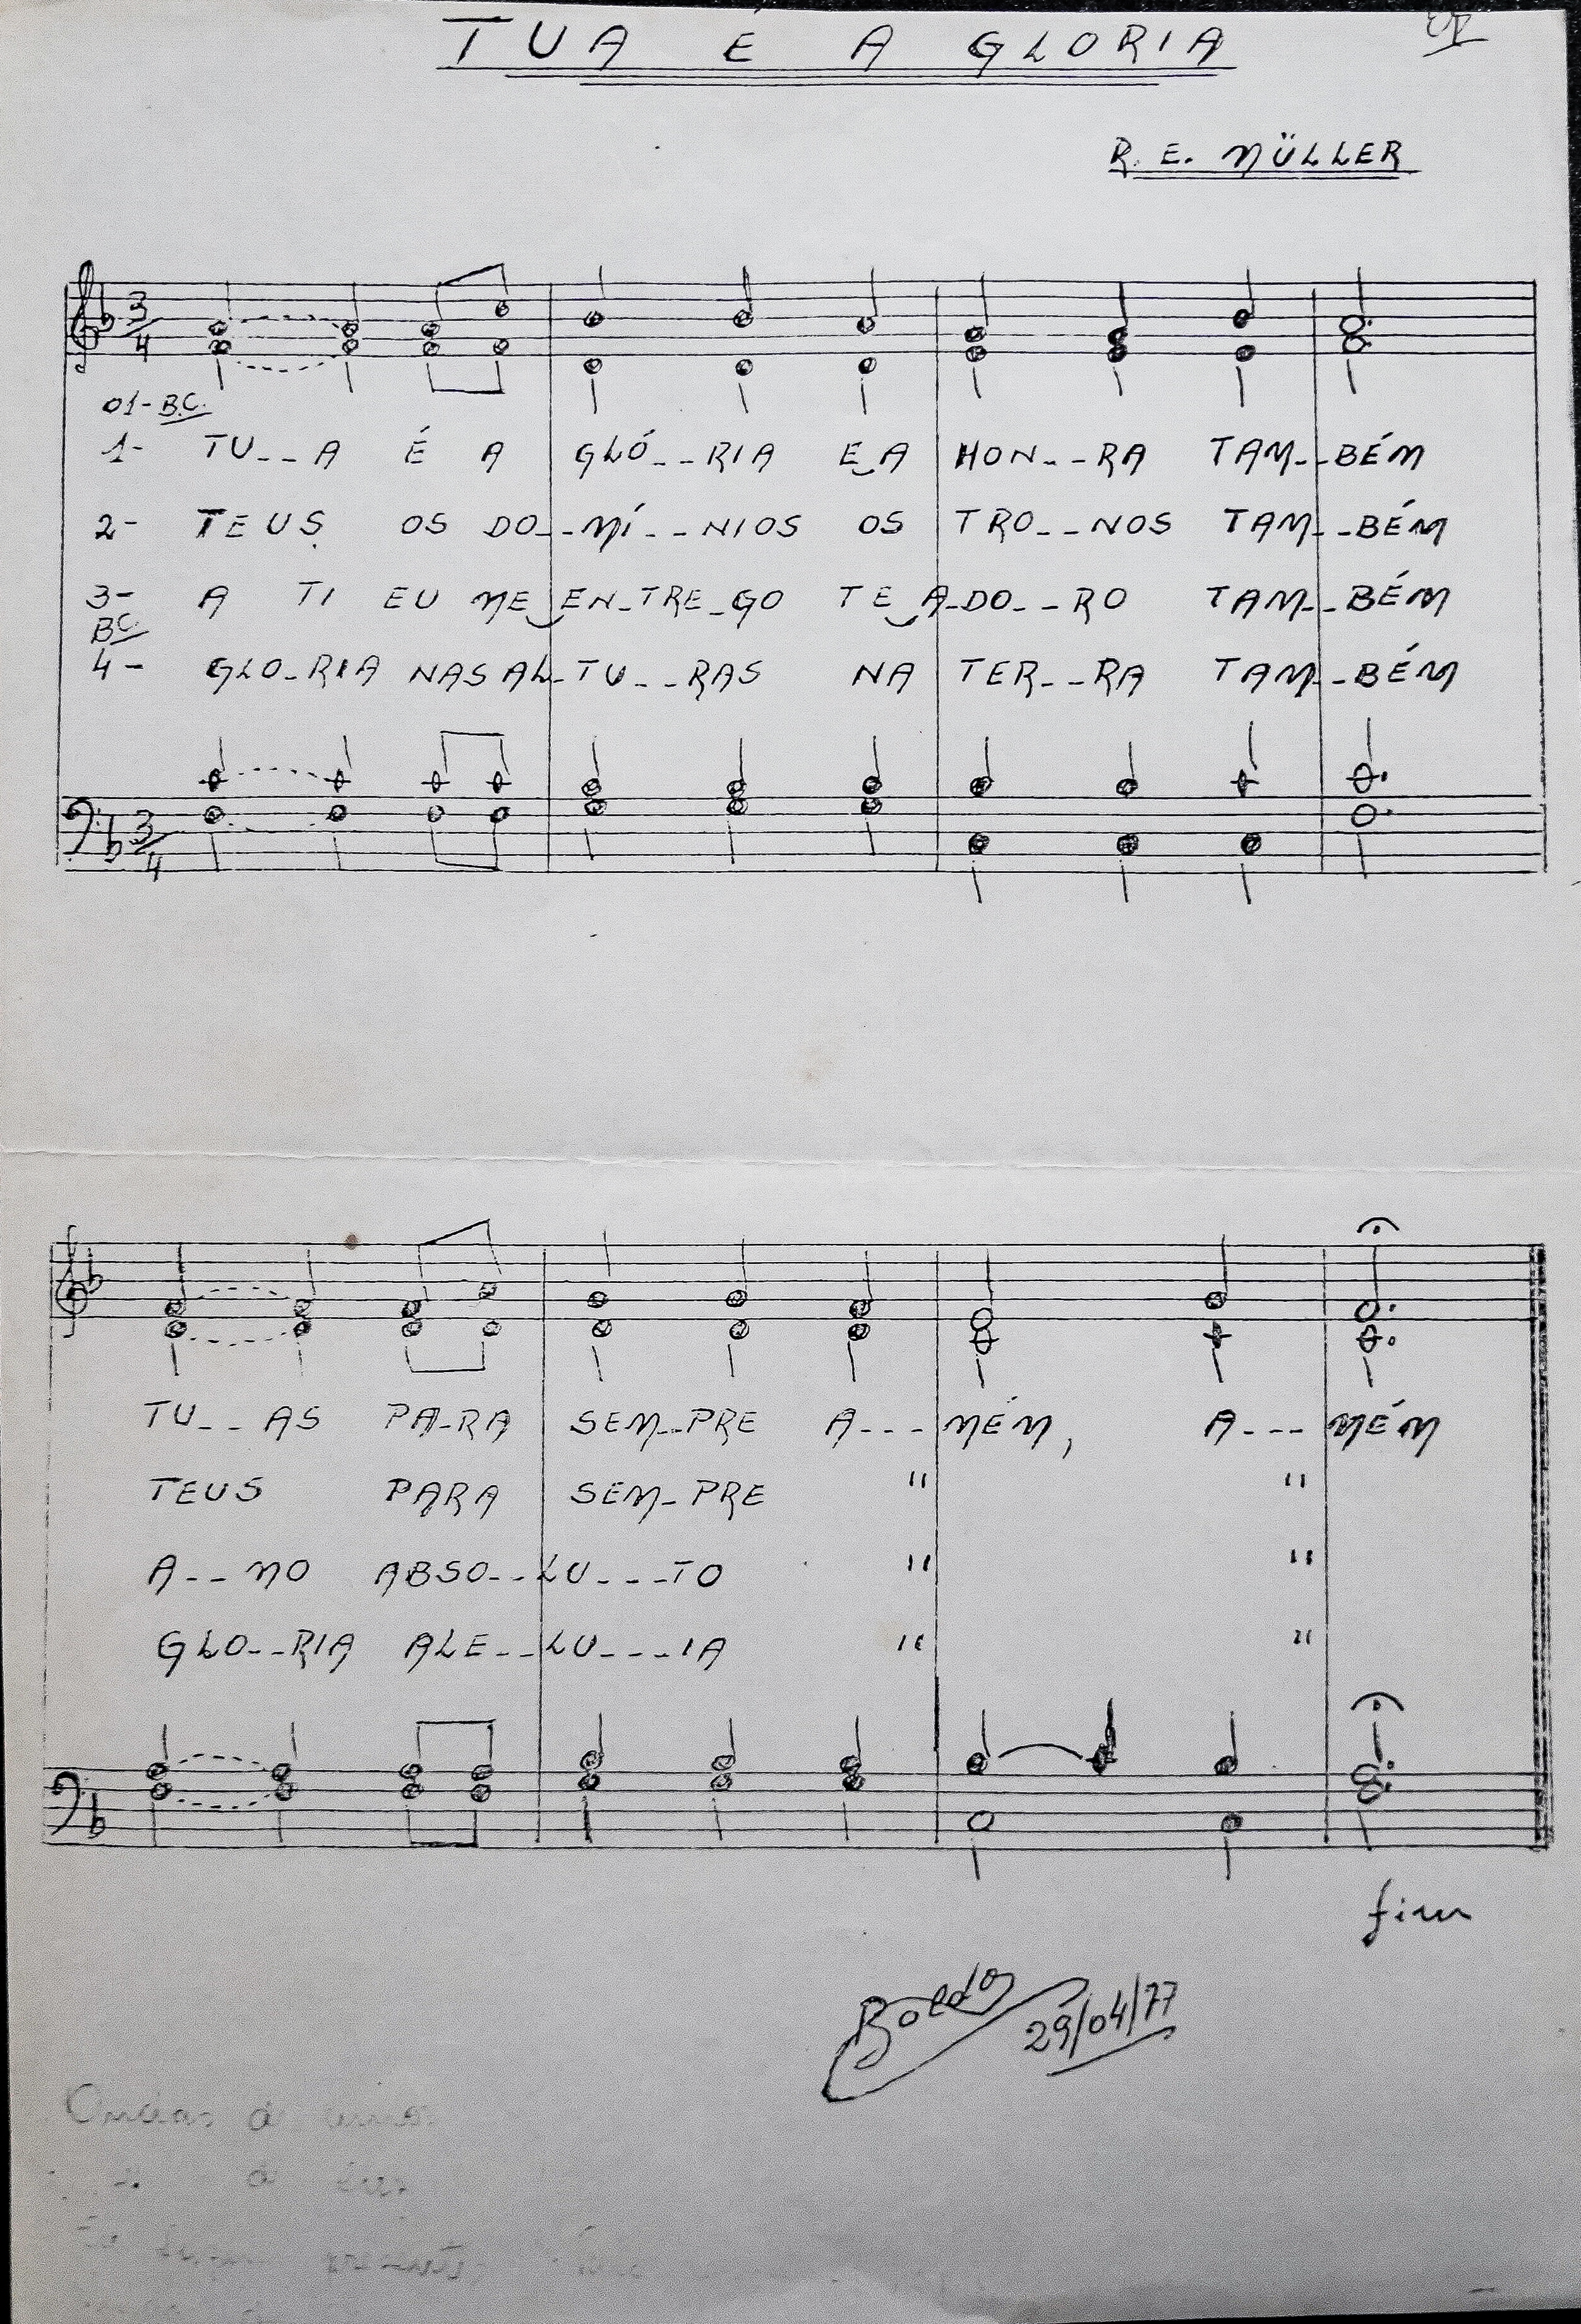 TUA É A GLORIA
R. E. MÜLLER
3/4
01- B.C.
1- TU--A É A GLÓ--RIA E A HON--RA TAM--BÉM
2- TEUS OS DO--MÍ--NIOS OS TRO--NOS TAM--BÉM
3- A TI EU ME EN-TRE-GO TE A-DO--RO TAM--BÉM
BC.
4- GLO-RIA NAS AL-TU--RAS NA TER--RA TAM--BÉM
3/4
TU--AS PA-RA SEM--PRE A---MÉM, A---MÉM
TEUS PARA SEM-PRE " "
A--MO ABSO--LU---TO " "
GLO--RIA ALE--LU---IA " "
fim
29/04/77